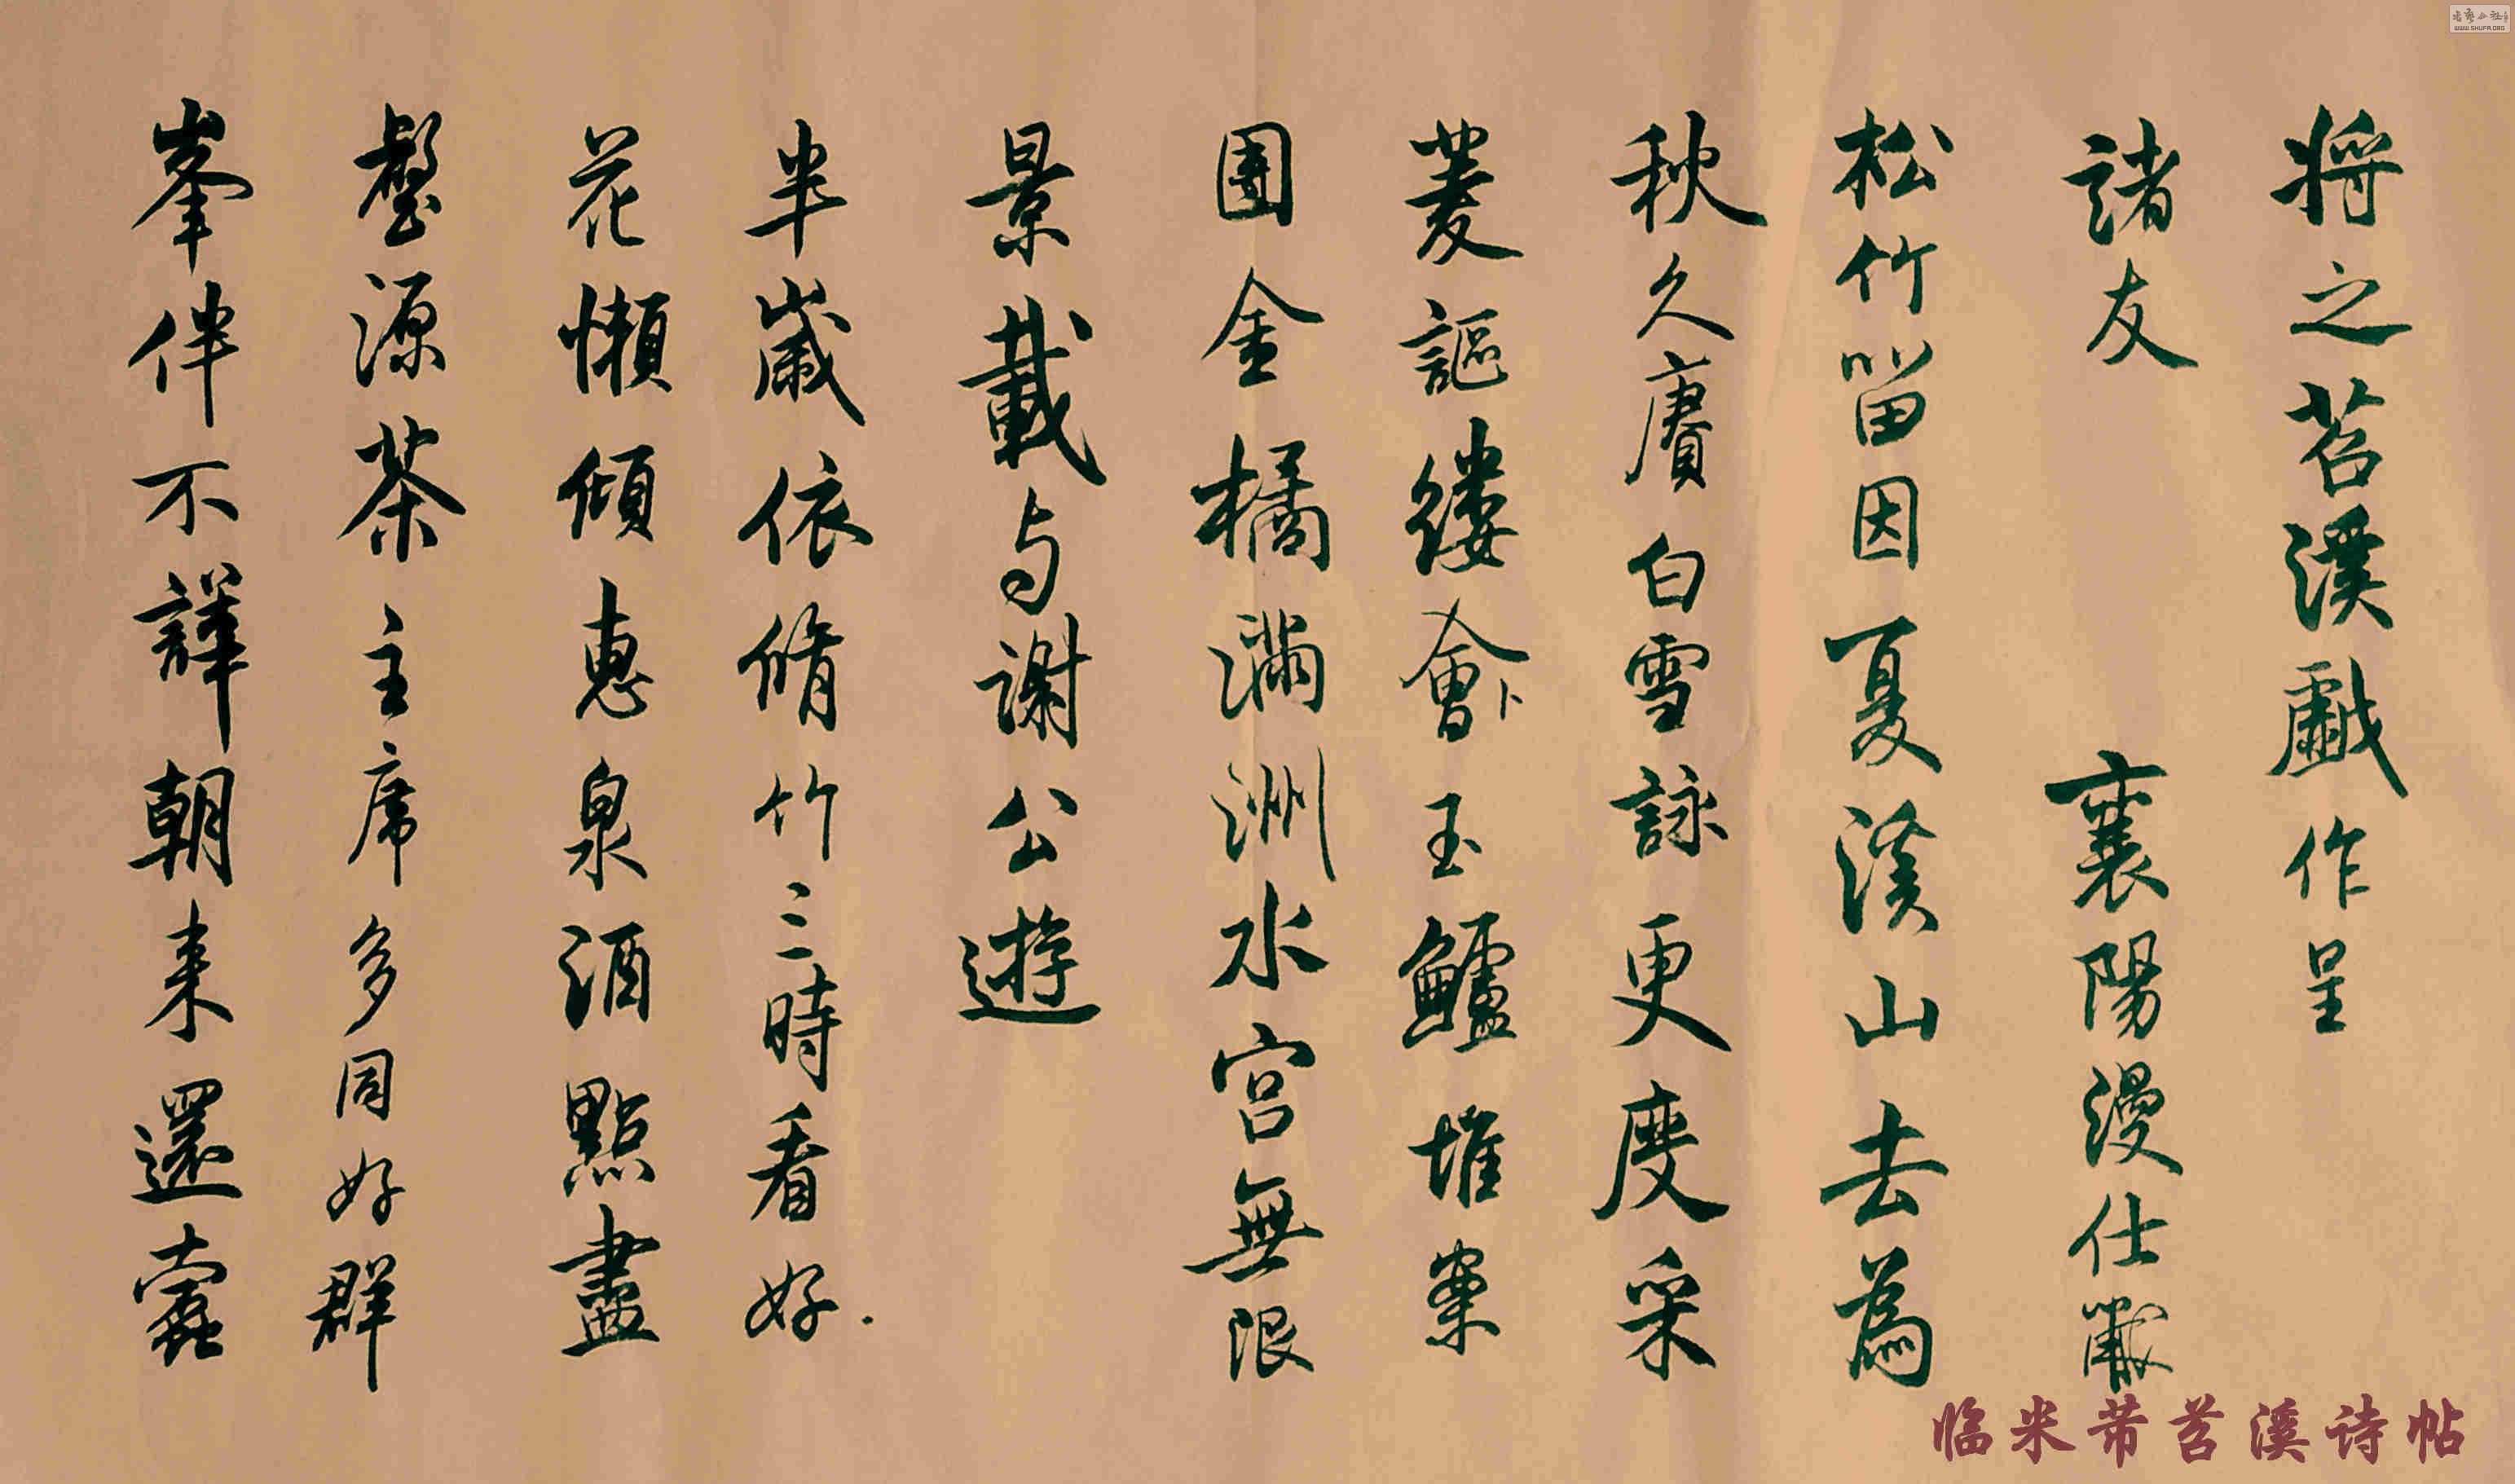 将之苕溪戲作呈
諸友 襄陽漫仕黻
松竹留因夏溪山去為
秋久賡白雪詠更度采
菱謳縷會卜玉鱸堆案
團金橘滿洲水宮無限
景載与謝公遊
半歲依脩竹三時看好
花懶傾惠泉酒點盡
壑源茶主席多同好群
峯伴不譁朝来還蠹
临米芾苕溪诗帖
WWW.SHUFA.ORG